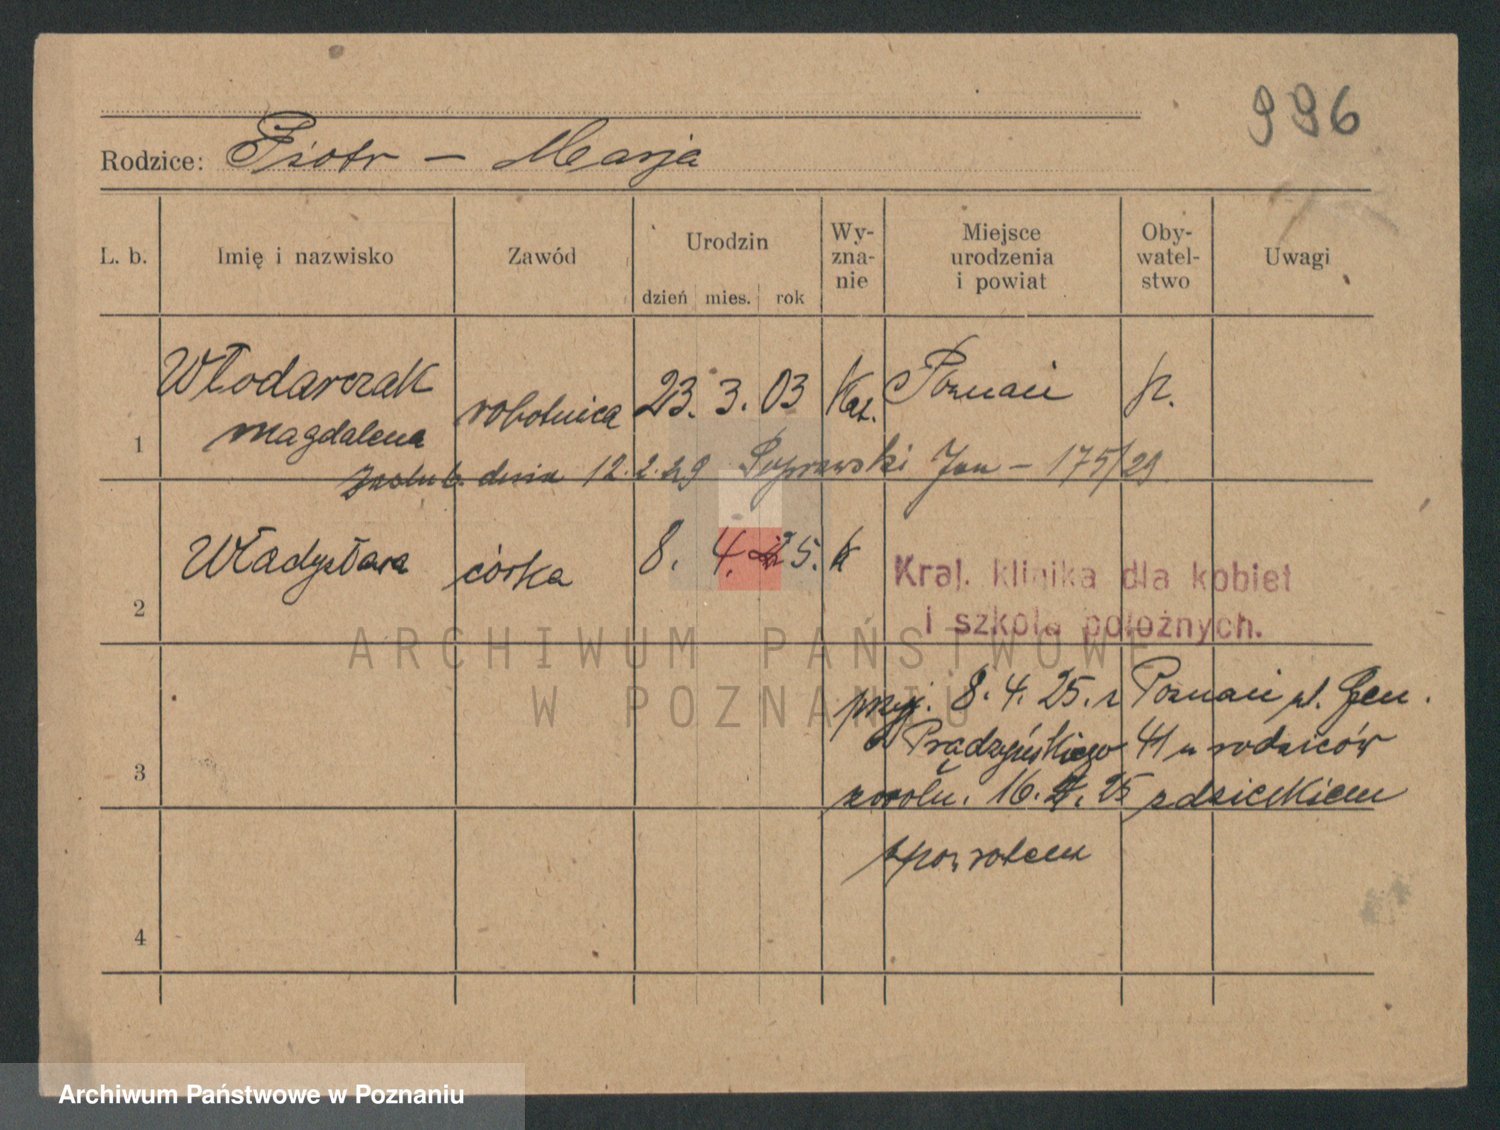 996
Rodzice: Piotr – Marja
L. b. Imię i nazwisko Zawód Urodzin Wy- Miejsce Oby- Uwagi
zna- urodzenia watel-
dzień mies. rok nie i powiat stwo
Włodarczak robotnica 23. 3. 03 Kat. Poznań p.
1 Magdalena
zaślub. dnia 12.2.29 Jan – 175/29
Władysława córka 8. 4. 25. k
Kraj. klinika dla kobiet
2 i szkoła położnych.
ARCHIWUM PAŃSTWOWE
W POZNANIU
przyj. 8. 4. 25. z Poznań pl. Gen.
Prądzyńskiego 41 u rodziców
3
zwoln. 16. 4. 25 z dzieckiem
z powrotem
4
Archiwum Państwowe w Poznaniu